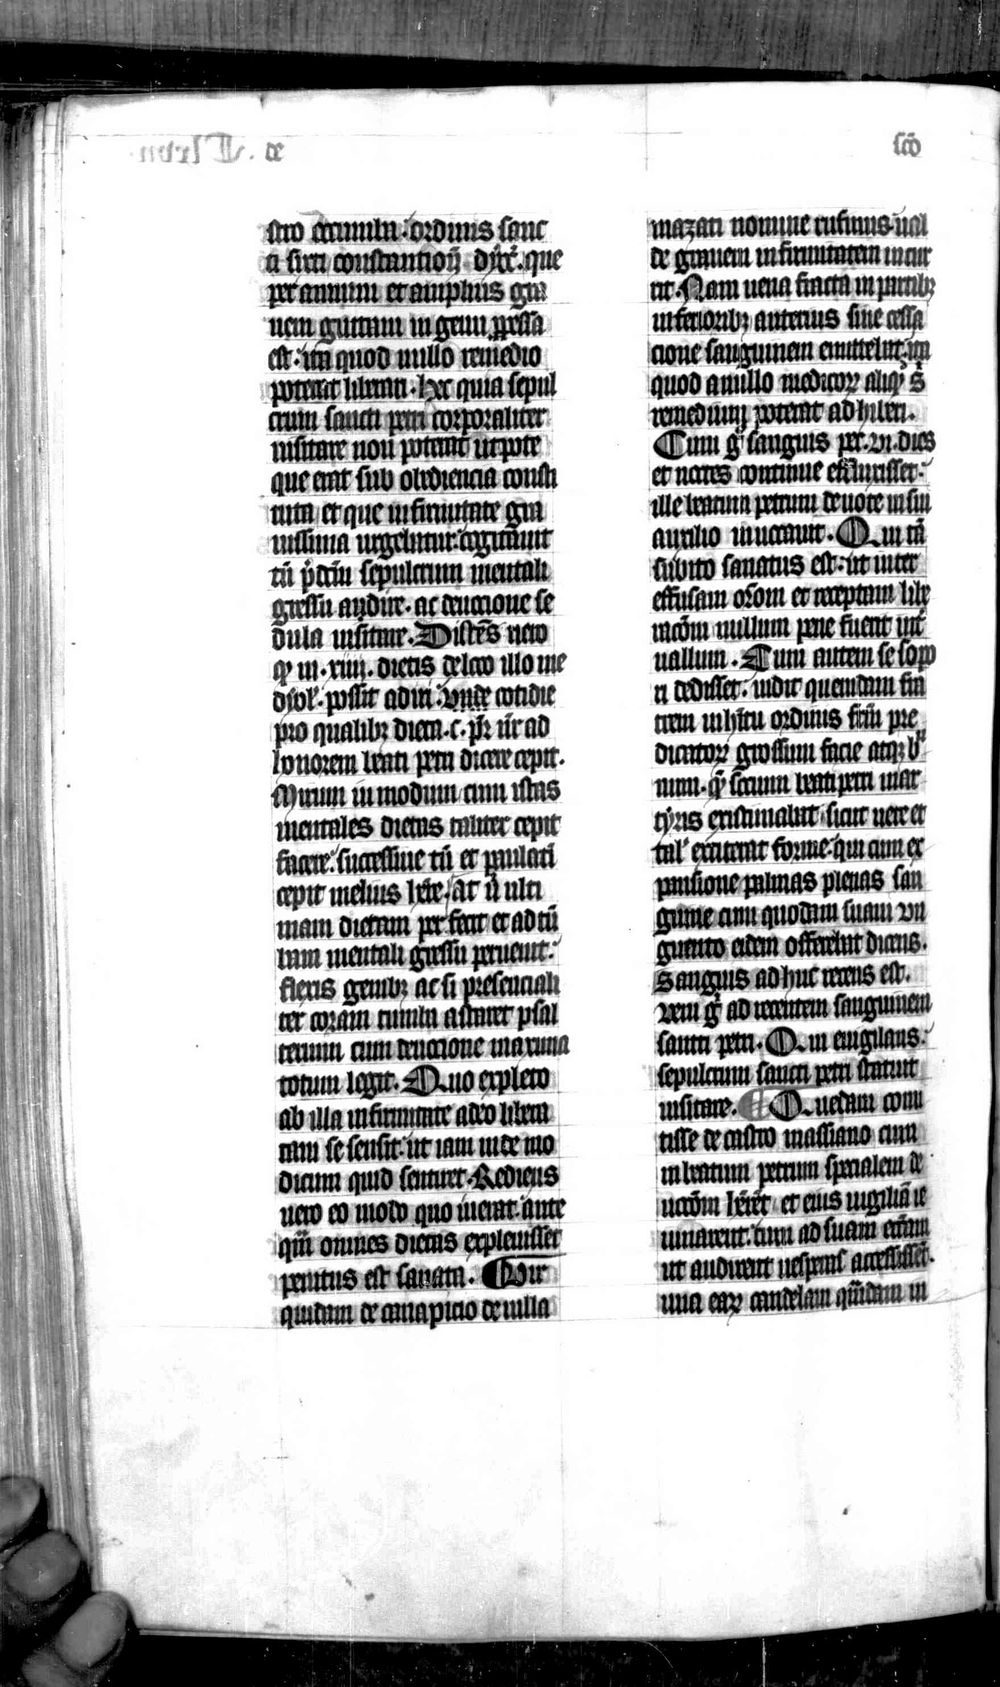 de
sco̅
stro cecunula ordinis sanc
ti sixti constantion̅ dyoc̅. que
per annum et amplius gra
uem guttam in genu p̲pessa
est. ita quod nullo remedio
poterat liberari. hec quia sepul
crum sancti petri corporaliter
uisitare non poterat utpote
que erat sub obediencia consti
tuta et que infirmitate gra
uissima urgebatur. cogitauit
tu̅ p̅dcm̅ sepulcrum mentali
gressu audire. ac deuocione se
dula uisitare. Distēs uero
q̲ in .xiiij. dietis de loco illo me
diol'. possit adiri. Unde cotidie
pro qualibꝫ dieta .c. pr̅ nr̅ ad
honorem beati petri dicere cepit.
Mirum in modum cum istas
mentales dietas taliter cepit
facere. successiue tn̅ et paulati̅
cepit melius h̅re. at u̅ ulti
mam dietam perfecit et ad tu̅
bam mentali gressu peruenit.
flexis genibꝫ ac si presenciali
ter coram tumba astaret psal
terium cum deuocione maxima
totum legit. Quo expleto
ab illa infirmitate adeo libera
tam se sensit. ut iam inde mo
dicum quid sentiret. Rediens
uero eo modo quo iuerat. ante
qua̅ omnes dietas expleuisset
penitus est sanata. Vir
quidam de canapicio de uilla
mazati nomine rufinus ual
de grauem infirmitatem incur
rit. Nam uena fracta in partibꝫ
inferioribꝫ anterius sine cessa
cione sanguinem emittebat. ita
quod a nullo medicoꝝ aliq̲
remedium poterat adhiberi.
Cum g̊ sanguis per .vi. dies
et noctes continue effluxisset.
ille beatum petrum deuote in sui
auxilio inuocauit. Qui ta̅
subito sanatus est. ut inter
effusam oro̅m et receptam libe
racio̅m nullum pene fuerit int̅
uallum. Cum autem se sopo
ri dedisset. uidit quemdam fra
trem in h̅itu ordinis frm̅ pre
dicatoꝝ grossum facie atqꝫ br̅
num. q̲ socium beati petri mar
tyris existimabat. sicut uere et
tal' extiterat forme. qui cum ex
pansione palmas plenas san
guine cum quodam suaui un
guento eidem offerebat dicens.
Sanguis adhuc recens est.
veni g̊ ad recentem sanguinem
sancti petri. Qui euigilans.
sepulcrum sancti petri statuit
uisitare. ¶ Quedam comi
tisse de castro massiano cum
in beatum petrum specialem de
uocio̅m h̅ret et eius uigilia̅ ie
iunarent. cum ad suam ecc̅am
ut audirent uesperas accessisset.
una eaꝝ candelam qua̅dam in